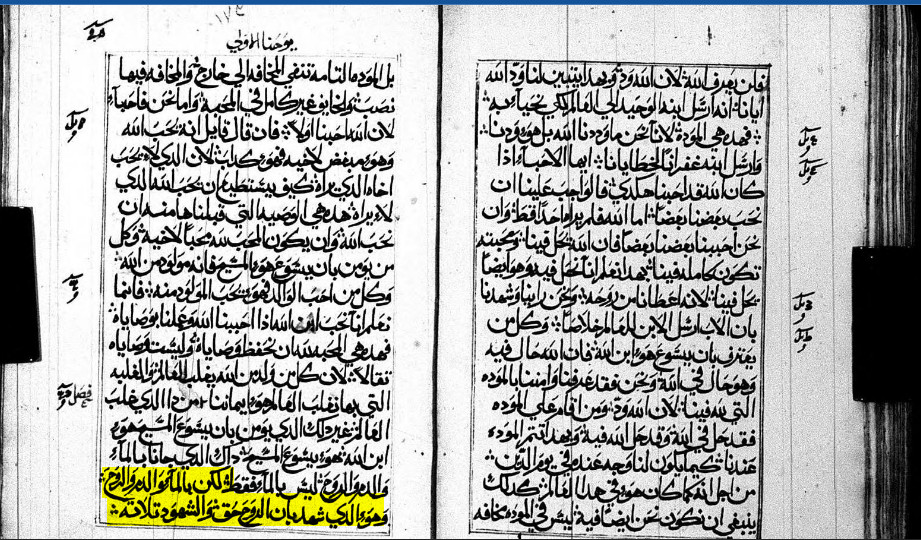 فلن يعرف الله لان الله ود وبهدا يتبين لنا ود الله
ايانا انه ارسل ابنه الوحيد الي العالم لكي نحيا به
فهده هي المودة لاننا نحن ما وددنا الله بل هو ودنا
وارسل ابنه غفرانا لخطايانا ايها الاحباء اذا
كان الله قد احبنا هكدي فالواجب علينا ان
نحب بعضنا بعضا اما الله فلم يراه احدا قط وان
نحن احببنا بعضنا بعضا فان الله يحل فينا ومحبته
تكون كامله فينا بهدا نعلم اننا نحل فيه وهو ايضا
يحل فينا لانه اعطانا من روحه ونحن راينا وشهدنا
بان الاب ارسل الابن للعالم خلاصا وكل من
يعترف بان يسوع هو ابن الله فان الله حال فيه
وهو حال في الله ونحن فقد عرفنا وامننا بالموده
التي لله فينا لان الله ود ومن اقام علي الموده
فقد حل في الله وقد حل الله فيه وبهدا تتم الموده
عندنا كيما يكون لنا وجه عنده في يوم الدين
من اجل انه كما كان هو في هدا العالم كدلك
ينبغي ان نكون نحن ايضا فيه ليس في الموده مخافه
١٧٤
يوحنا الاولي
بل الموده التامه تنفي المخافه الي خارج والمخافه فيها
نصب والخايف غير كامل في المحبة واما نحن فاحباء
لان الله احبنا اولا فان قال قايل انه يحب الله
وهو مبغض لاخيه فهو كداب لان الدي لا يحب
اخاه الدي يراه كيف يستطيع ان يحب الله الدي
لا يراه هده هي الوصيه التي قبلناها منه ان
نحب الله وان يكون المحب لله محبا لاخيه وكل
من يومن بان يسوع هو المسيح فانه مولود من الله
وكل من احب الوالد فهو يحب المولود منه فانما
نعلم اننا نحب ابن الله اذا احببنا الله وعملنا بوصاياه
فهده هي المحبه لله ان نحفظ وصاياه وليست وصاياه
تقالا لان كل من ولد من الله يغلب العالم والغلبه
التي بها نغلب العالم هو ايماننا من دا الدي غلب
العالم غير دلك الدي يومن بان يسوع المسيح هو
ابن الله هو يسوع المسيح داك الدي جانا بالماء
والدم والروح ليس بالماء فقط لكن بالماء والدم والروح
وهو الدي شهد بان الروح حق والشهود تلاته